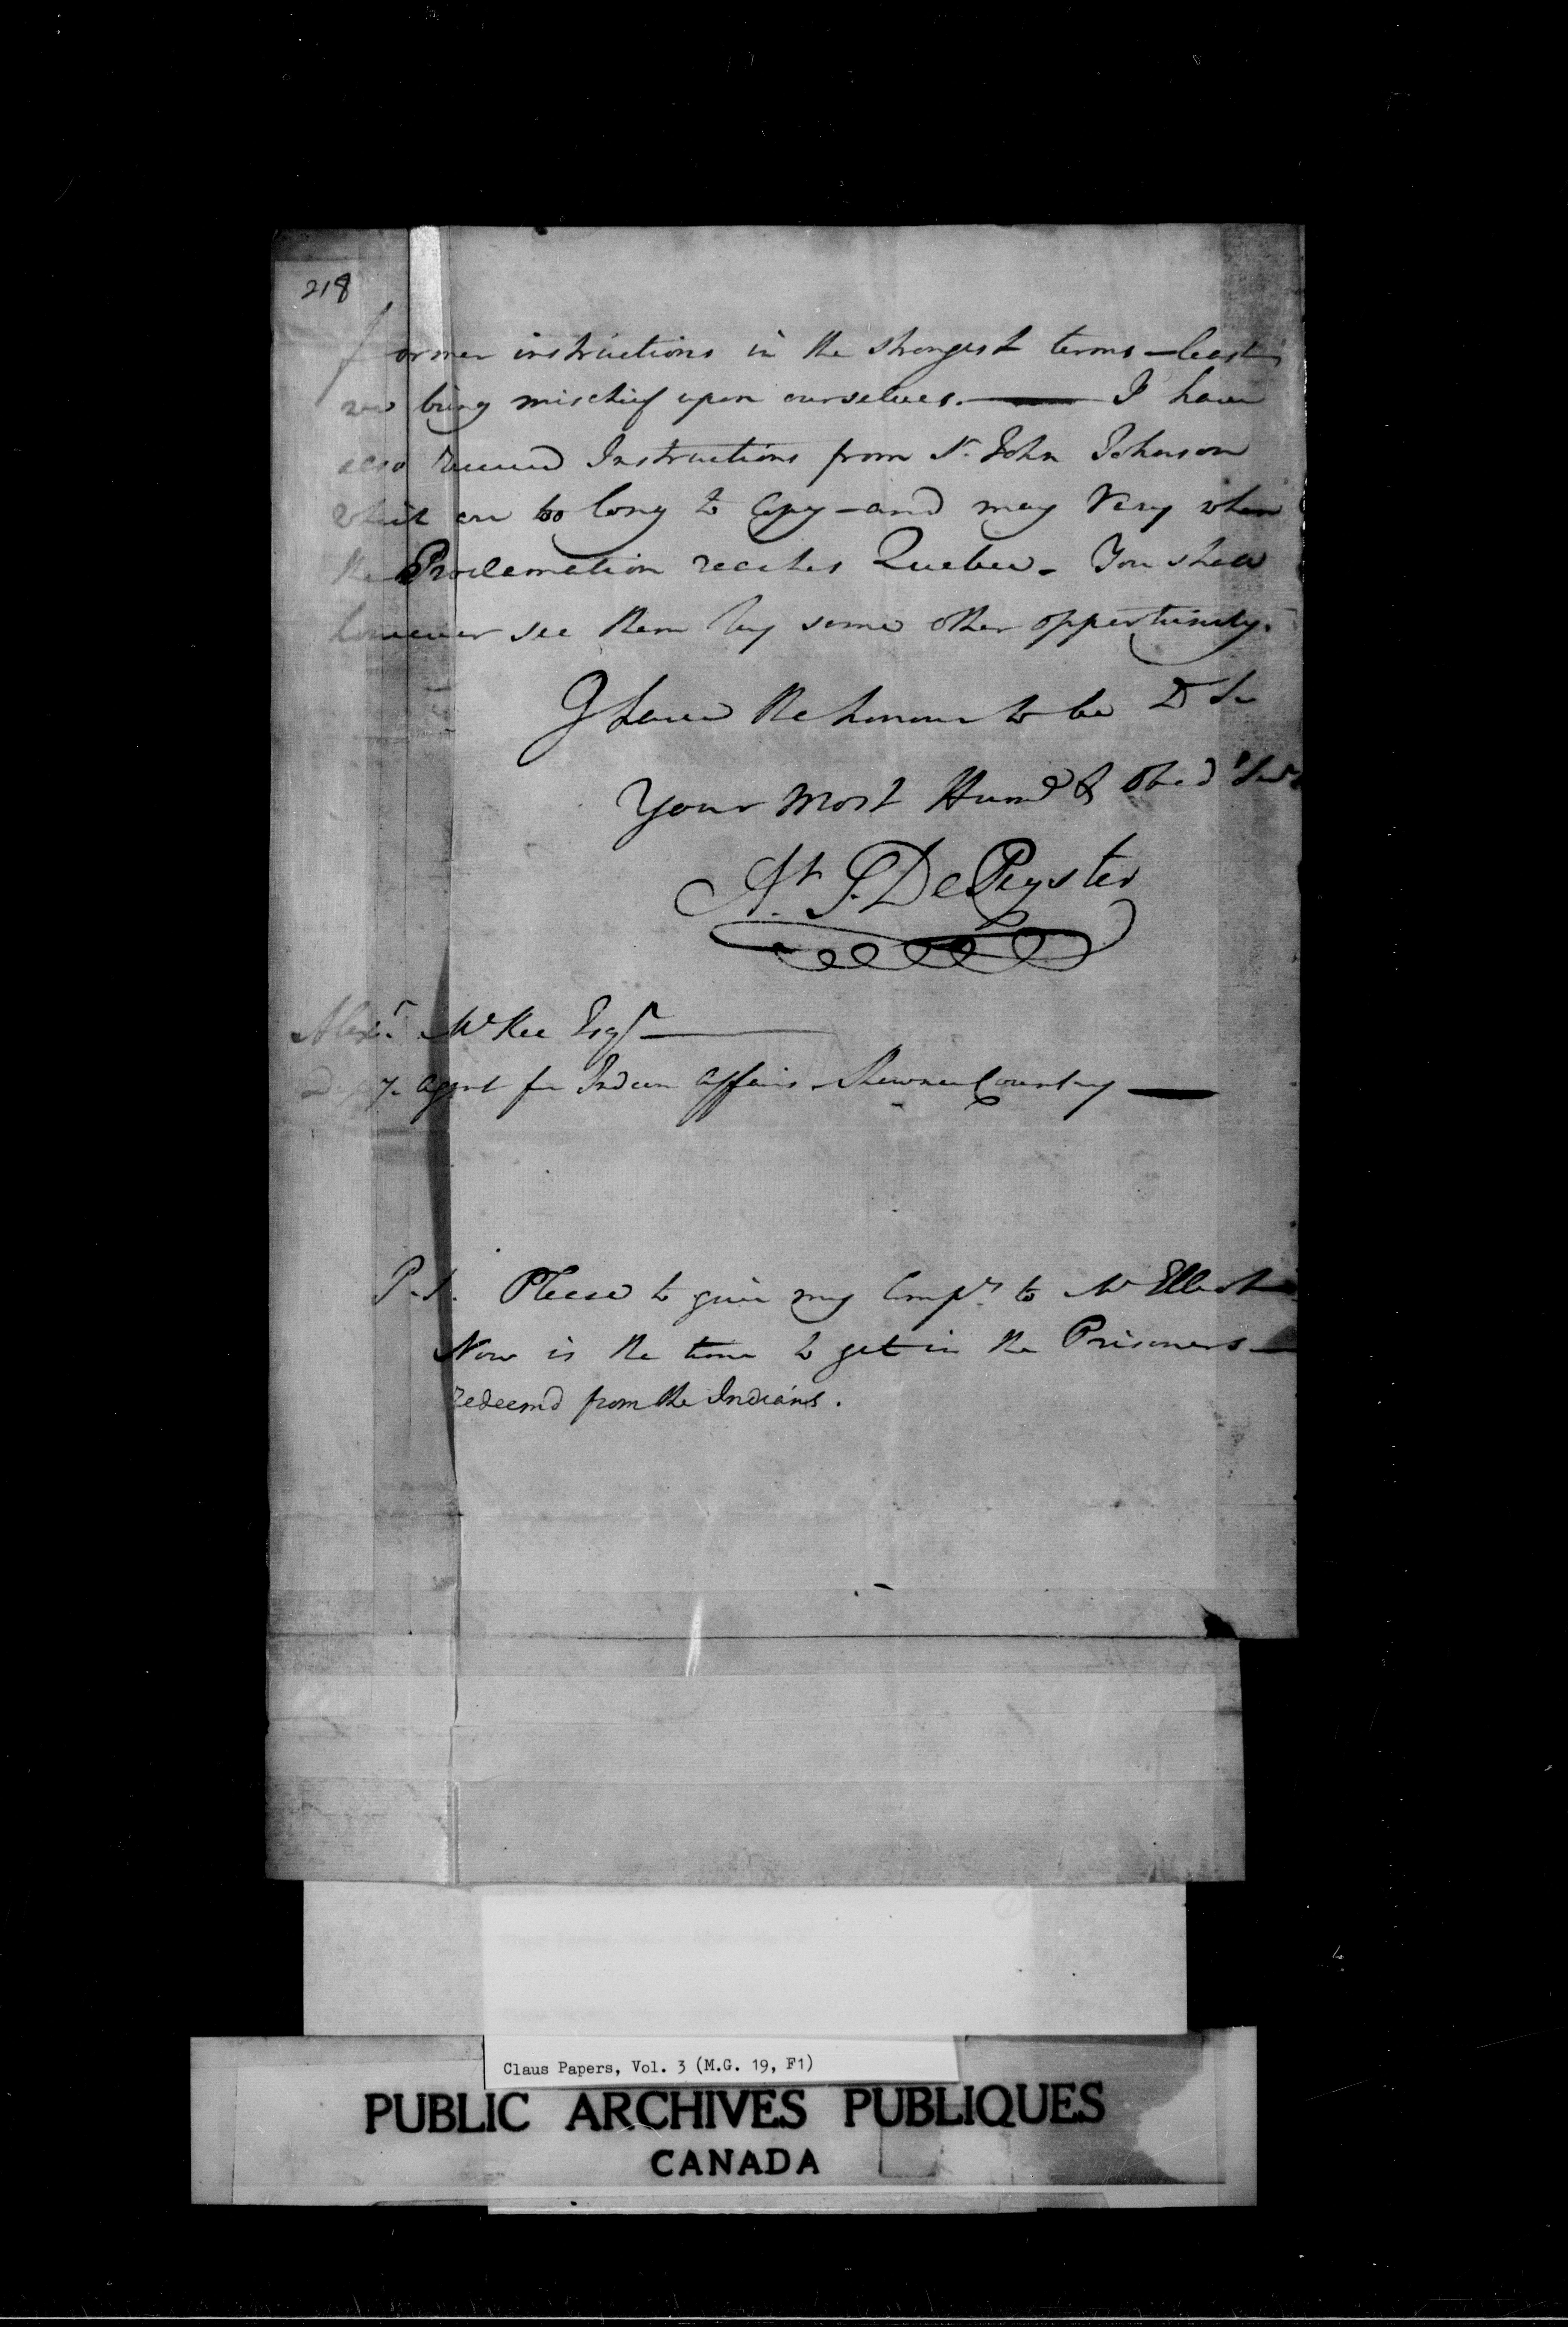 218
former instructions in the strongest terms — least
we bring mischief upon ourselves. — I have
also received Instructions from Sr. John Johnson
which are too long to Copy — and may Vary when
the Proclamation reaches Quebec - You shall
however see them by some other oppertunity.
I have the honour to be D Sir
Your most Humb & Obed't Serv't
At. S. DePeyster
Alexr. McKee Esqr —
Depy. Agent for Indian Affairs Shawnee Country —
P.S. Please to give my Compts. to Mr Elliot
Now is the time to get in the Prisoners —
redeem'd from the Indians.
Claus Papers, Vol. 3 (M.G. 19, F1)
PUBLIC ARCHIVES PUBLIQUES
CANADA